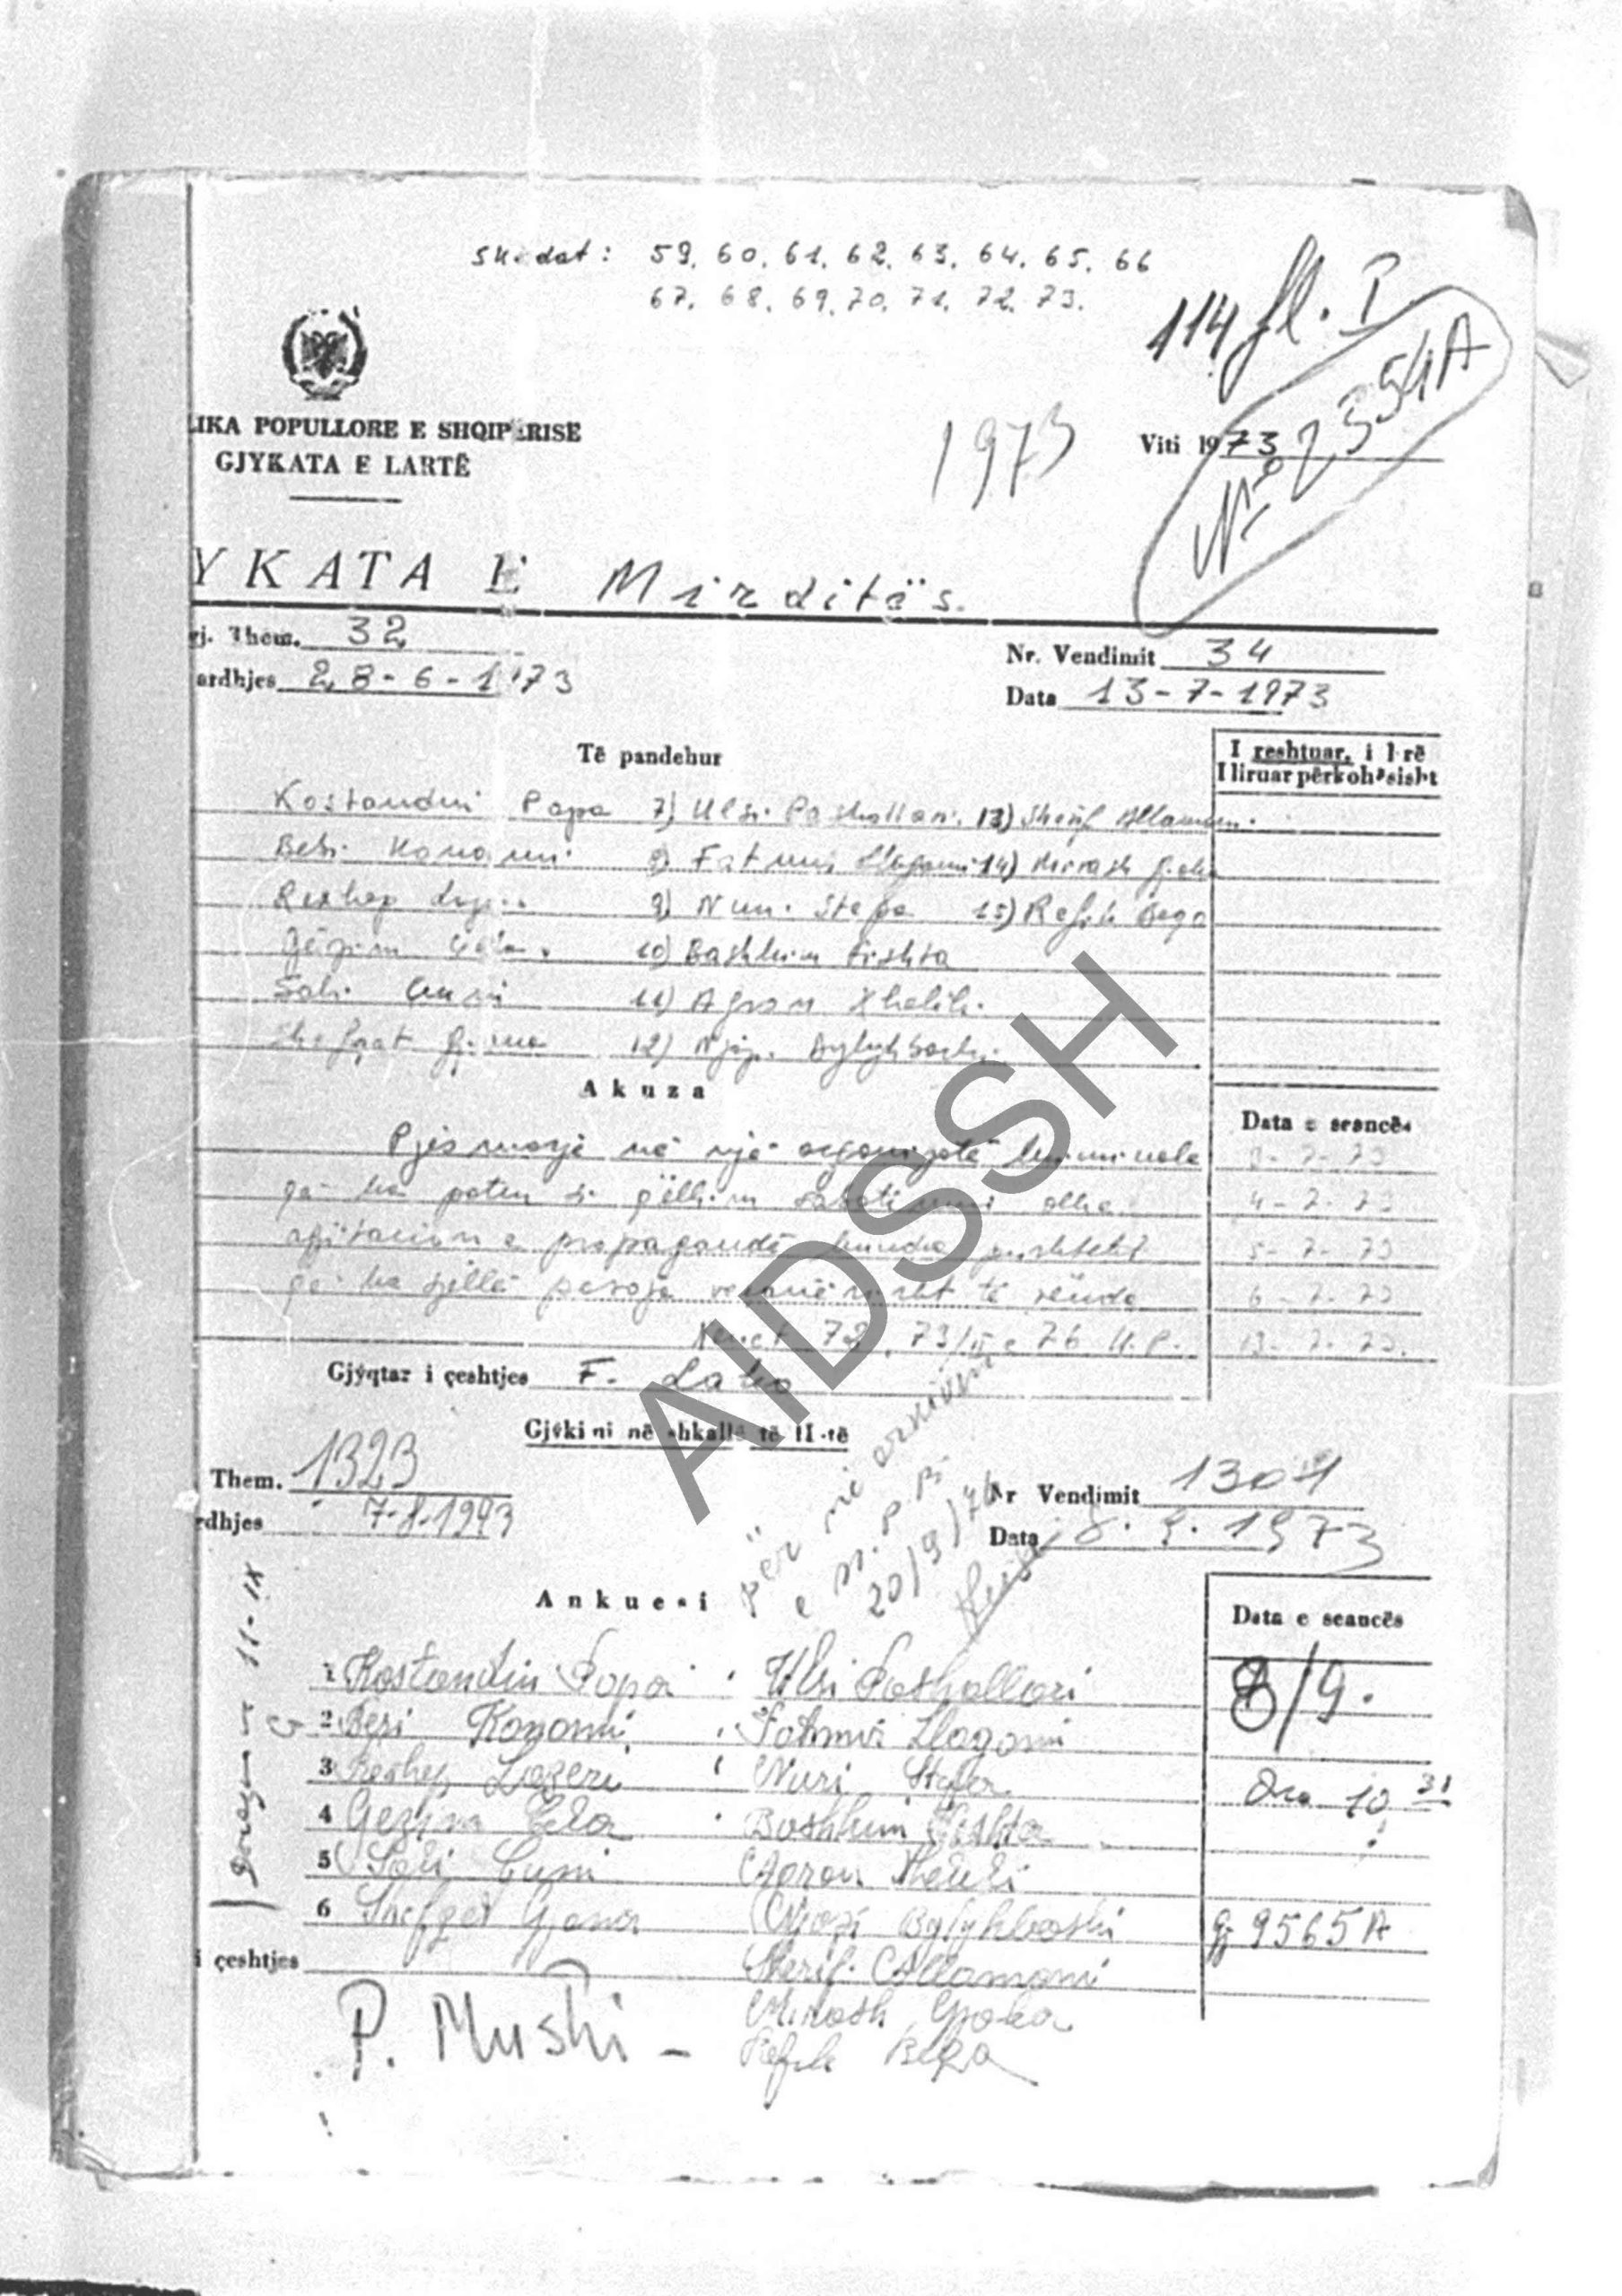 skedat: 59, 60, 61, 62, 63, 64, 65, 66
67, 68, 69, 70, 71, 72, 73.
114 fl. I
Nr 2354A
LIKA POPULLORE E SHQIPERISE
GJYKATA E LARTË
1973
Viti 1973
YKATA E Mirditës.
gj. Them. 32
Nr. Vendimit 34
ardhjes 28-6-1973
Data 13-7-1973
Të pandehur
I reshtuar, i l rë
I liruar përkohësisht
Kostandin Papa 7) Ulsi Pashollari 13) Sherif Allamani
Besi Konomi 8) Fatmir Llagami 14) Mirash Gjoka
Rexhep 9) Nuri Stefa 15) Refik Bega
Gëzim Cela 10) Bashkim Fishta
Sali Cuni 11) Agron Xhelili
Shefqet Gjana 12) Njazi Bylykbashi
Akuza
Data e seancës
Pjesmarrje në një organizatë kriminale
3-7-73
që ka patur si qëllim dhe
4-7-73
agitacion e propagandë kundra pushtetit
5-7-73
që ka sjellë pasoja veçanërisht të rënda
6-7-73
Nenet 72, 73/ e 76 K.P.
13-7-73.
Gjyqtar i çeshtjes F. Lako
Gjykimi në shkallë të II-të
Them. 1323
Nr Vendimit 1304
rdhjes 7-8-1973
Data 8.9.1973
për në arkivin
e M.P.B.
20/9/76
Ankuesi
Data e seancës
11-IX
1 Kostandin Papa Ulsi Pashollari
8/9.
2 Besi Konomi Fatmir Llagami
3 Rexhep Nuri Stefa
Ora 10 31
4 Gezim Cela Bashkim Fishta
5 Sali Cuni Agron Xhelili
6 Shefqet Gjana Njazi Bylykbashi
Gj 9565 A
i çeshtjes
Sherif Allamani
P. Mushi -
Mirash Gjoka
Refik Bega
AIDSSH